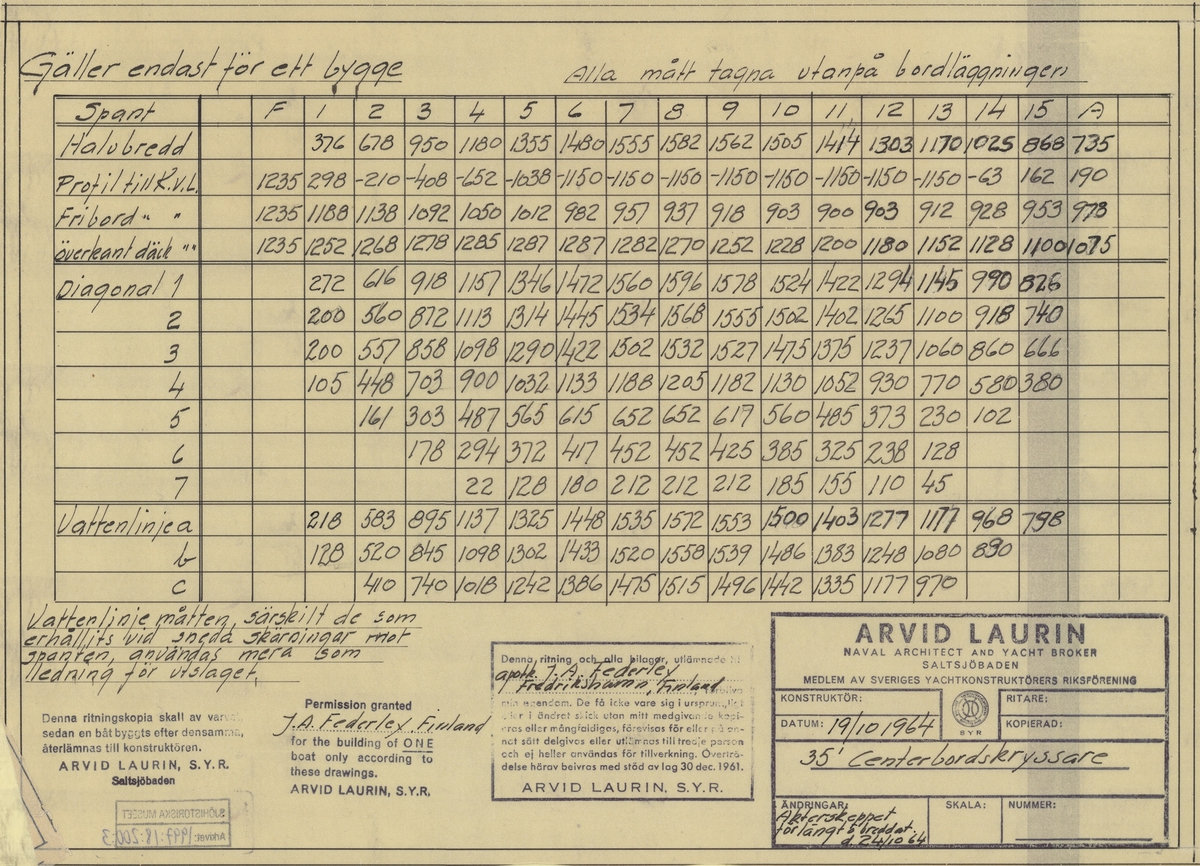 Gäller endast för ett bygge
Alla mått tagna utanpå bordläggningen
Spant F 1 2 3 4 5 6 7 8 9 10 11 12 13 14 15 A
Halvbredd 376 678 950 1180 1355 1480 1555 1582 1562 1505 1414 1303 1170 1025 868 735
Profil till K.V.L. 1235 298 -210 -408 -652 -1038 -1150 -1150 -1150 -1150 -1150 -1150 -1150 -1150 -63 162 190
Fribord " " 1235 1188 1138 1092 1050 1012 982 957 937 918 903 900 903 912 928 953 973
överkant däck " " 1235 1252 1268 1278 1285 1287 1287 1282 1270 1252 1228 1200 1180 1152 1128 1100 1075
Diagonal 1 272 616 918 1157 1346 1472 1560 1596 1578 1524 1422 1294 1145 990 826
2 200 560 872 1113 1314 1445 1534 1568 1555 1502 1402 1265 1100 918 740
3 200 557 858 1098 1290 1422 1502 1532 1527 1475 1375 1237 1060 860 666
4 105 448 703 900 1032 1133 1188 1205 1182 1130 1052 930 770 580 380
5 161 303 487 565 615 652 652 617 560 485 373 230 102
6 178 294 372 417 452 452 425 385 325 238 128
7 22 128 180 212 212 212 185 155 110 45
Vattenlinje a 218 583 895 1137 1325 1448 1535 1572 1553 1500 1403 1277 1177 968 798
b 128 520 845 1098 1302 1433 1520 1558 1539 1486 1383 1248 1080 890
c 410 740 1018 1242 1386 1475 1515 1496 1442 1335 1177 970
Vattenlinje måtten, särskilt de som
erhållits vid sneda skärningar mot
spanten, användas mera som
ledning för utslaget.
Denna ritningskopia skall av varvet
sedan en båt byggts efter densamma,
återlämnas till konstruktören.
ARVID LAURIN, S.Y.R.
Saltsjöbaden
SJÖHISTORISKA MUSEET
Arkivnr: 1997:18:200:3
Permission granted
J.A. Federley, Finland
for the building of ONE
boat only according to
these drawings.
ARVID LAURIN, S.Y.R.
Denna ritning och alla bilagor, utlämnade till
apoth. J. A. Federley
Fredrikshamn, Finland
min egendom. De få icke vare sig i ursprungligt
eller i ändrat skick utan mitt medgivande kopi-
eras eller mångfaldigas, förevisas för eller på an-
nat sätt delgivas eller utlämnas till tredje person
och ej heller användas för tillverkning. Överträ-
delse härav beivras med stöd av lag 30 dec. 1961.
ARVID LAURIN, S.Y.R.
ARVID LAURIN
NAVAL ARCHITECT AND YACHT BROKER
SALTSJÖBADEN
MEDLEM AV SVERIGES YACHTKONSTRUKTÖRERS RIKSFÖRENING
KONSTRUKTÖR:
RITARE:
DATUM: 19/10 1964
SYR
KOPIERAD:
35' Centerbordskryssare
ÄNDRINGAR:
SKALA:
NUMMER:
Akterskeppet
förlängt o breddat.
d. 24/10 64